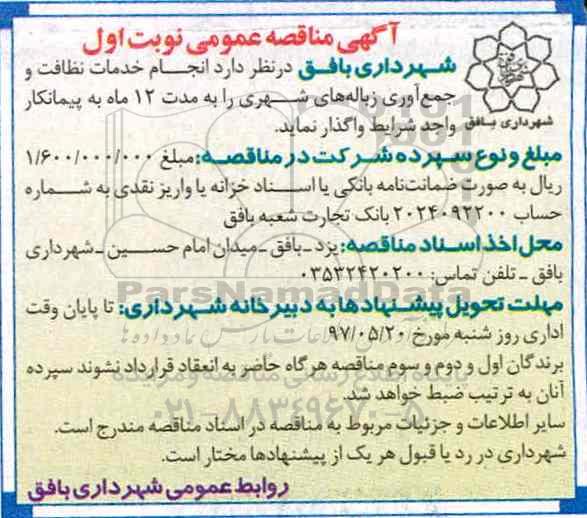 آگهی مناقصه عمومی نوبت اول
شهرداری بافق درنظر دارد انجام خدمات نظافت و
جمع‌آوری زباله‌های شهری را به مدت ۱۲ ماه به پیمانکار
واجد شرایط واگذار نماید.
شهرداری بافق
مبلغ و نوع سپرده شرکت در مناقصه: مبلغ ۱/۶۰۰/۰۰۰/۰۰۰
ریال به صورت ضمانت‌نامه بانکی یا اسناد خزانه یا واریز نقدی به شماره
حساب ۲۰۲۴۰۹۲۲۰۰ بانک تجارت شعبه بافق
محل اخذ اسناد مناقصه: یزد ـ بافق ـ میدان امام حسین ـ شهرداری
بافق ـ تلفن تماس: ۰۳۵۳۲۴۲۰۲۰۰
مهلت تحویل پیشنهادها به دبیرخانه شهرداری: تا پایان وقت
اداری روز شنبه مورخ ۹۷/۰۵/۲۰
برندگان اول و دوم و سوم مناقصه هرگاه حاضر به انعقاد قرارداد نشوند سپرده
آنان به ترتیب ضبط خواهد شد.
سایر اطلاعات و جزئیات مربوط به مناقصه در اسناد مناقصه مندرج است.
شهرداری در رد یا قبول هر یک از پیشنهادها مختار است.
روابط عمومی شهرداری بافق
ParsNamadData
پایگاه اطلاع رسانی مناقصه و مزایده
۰۲۱-۸۸۳۴۹۶۷۰-۵